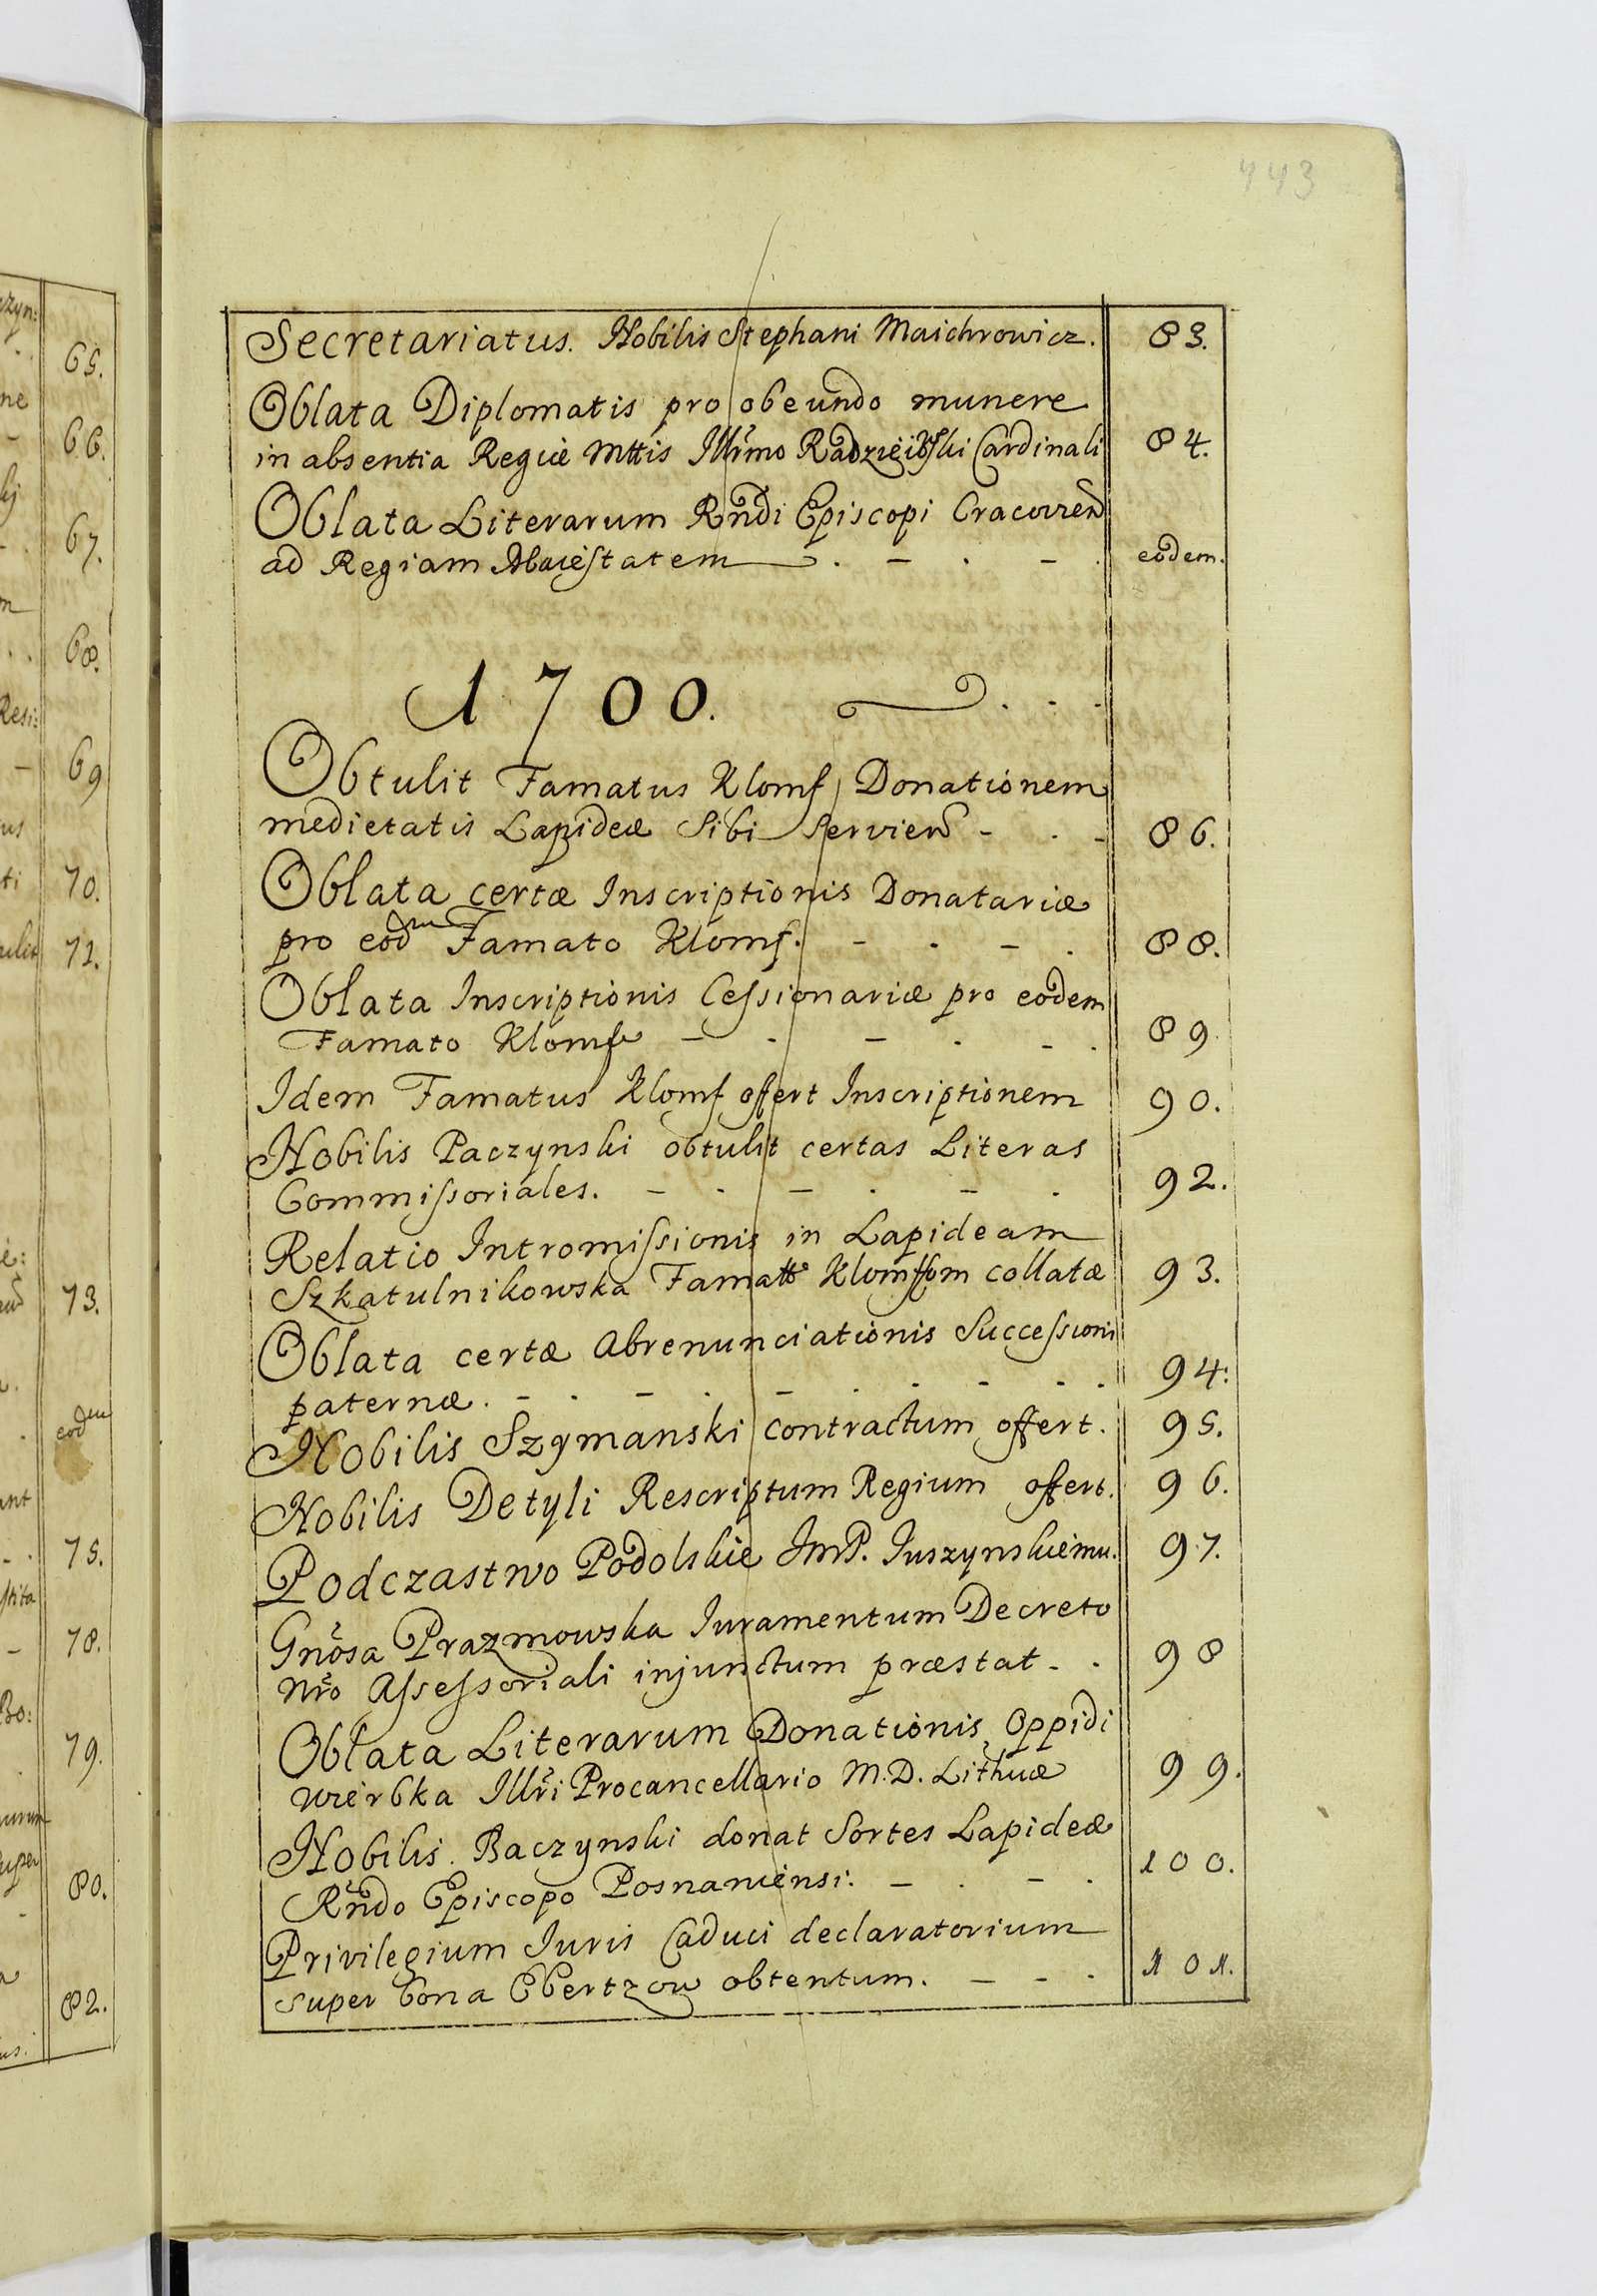 443
Secretariatus. Nobilis Stephani Maichrowicz. 83.
Oblata Diplomatis pro obeundo munere
in absentia Regiæ Mttis Illr̃mo Radzieiowski Cardinali 84.
Oblata Literarum Rñdi Episcopi Cracovieñ
ad Regiam Maiestatem . – . – . eodem.
1700. . . .
Obtulit Famatus Klomf Donationem
medietatis Lapideæ sibi servieñ - . - 86.
Oblata certæ Inscriptionis Donatariæ
pro eodm Famato Klomf. – . – . 88.
Oblata Inscriptionis Cessionariæ pro eodem
Famato Klomf – . – . – . 89
Idem Famatus Klomf offert Inscriptionem 90.
Nobilis Paczynski obtulit certas Literas
Commissoriales. – . – . – . 92.
Relatio Intromissionis in Lapideam
Szkatulnikowska Famatt Klomffom collatæ 93.
Oblata certæ Abrenunciationis Successionis
paternæ. – . – . – . . – . . 94:
Nobilis Szymanski contractum offert. 95.
Nobilis Detyli Rescriptum Regium offert. 96.
Podczastwo Podolskie JmP. Juszynskiemu. 97.
Gñosa Prazmowska Juramentum Decreto
Nr̃o Assessoriali injunctum præstat - . 98
Oblata Literarum Donationis Oppidi
Wierbka Illr̃i Procancellario M.D. Lithuæ 99.
Nobilis. Baczynski donat Sortes Lapideæ
Rñdo Episcopo Posnaniensi. – . – . 100.
Privilegium Juris Caduci declaratorium
super bona Ebertzow obtentum. – - . 101.
65.
66.
67.
68.
69
70.
71.
73.
eodm
75.
78.
79.
80.
82.